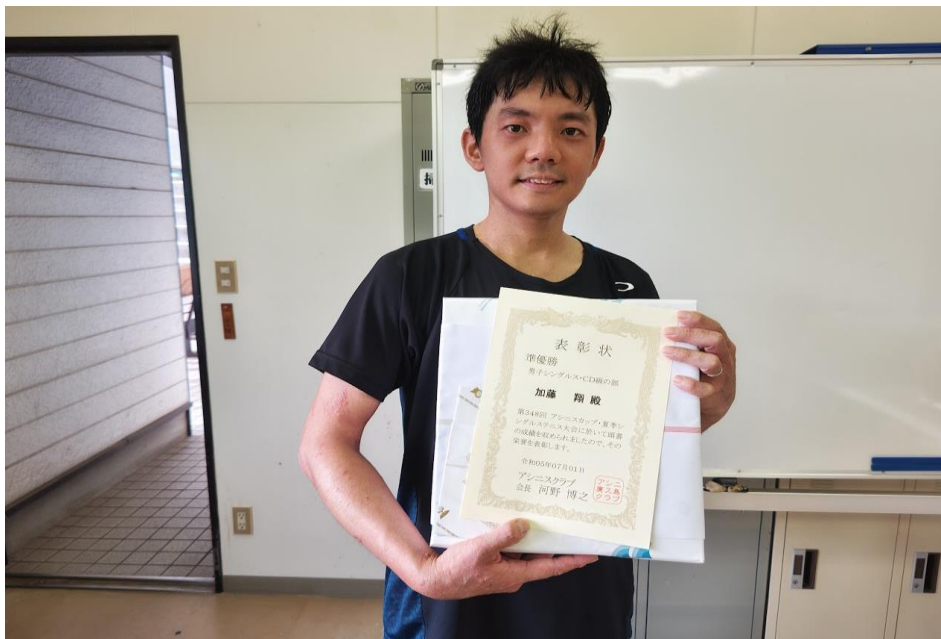 表彰状
準優勝
男子シングルス・CD級の部
加藤 翔 殿
第348回 アシニスカップ・夏季シ
ングルステニス大会に於いて頭書
の成績を収められましたので、その
栄誉を表彰します。
令和05年07月01日
アシニスクラブ
会長 河野 博之